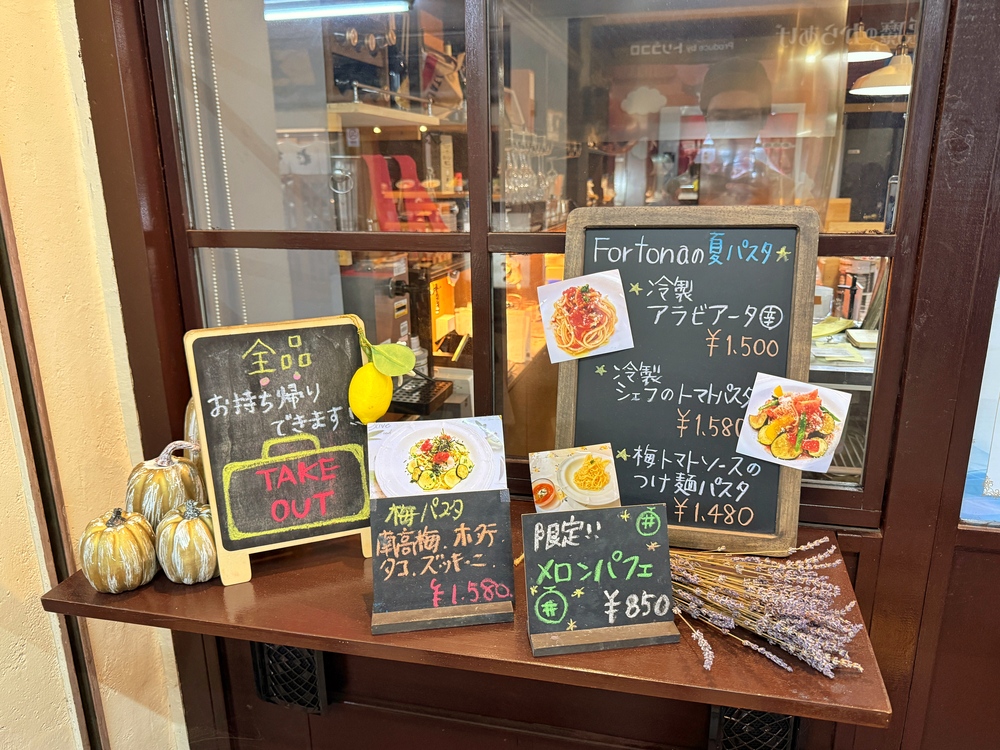 Produce by トリココロ
全品
お持ち帰り
できます
TAKE
OUT
Fortonaの夏パスタ
冷製
アラビアータ辛
¥1.500
冷製
シェフのトマトパスタ
¥1.580
梅トマトソースの
つけ麺パスタ
¥1.480
梅パスタ
南高梅、ホタテ
タコ、ズッキーニ
¥1.580.
限定!!
メロンパフェ
¥850